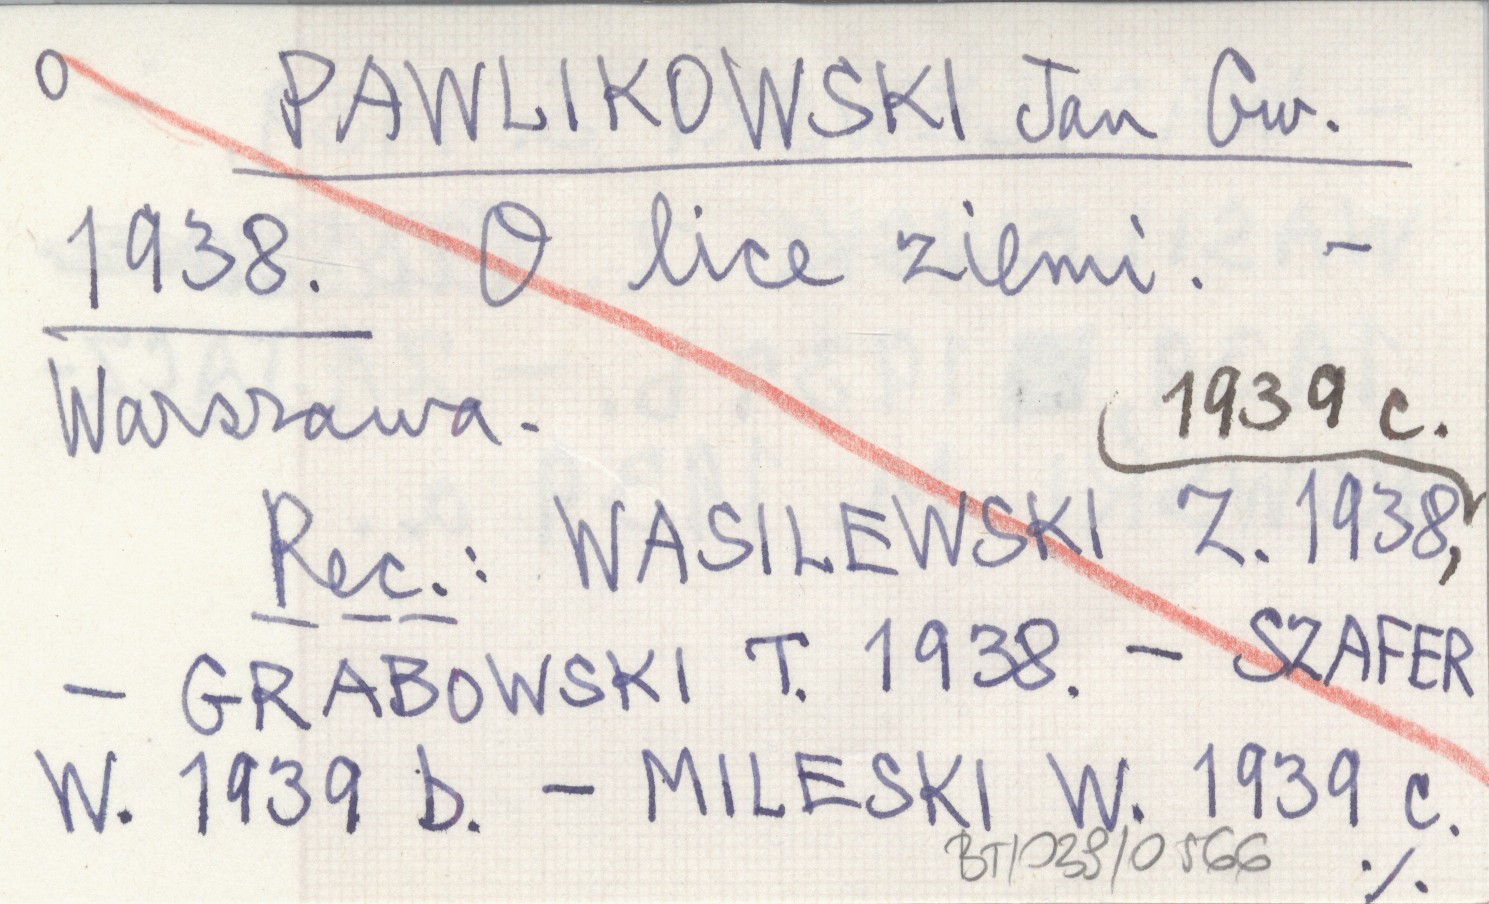 O PAWLIKOWSKI Jan Gw.
1938. O lice ziemi. –
Warszawa.
1939 c.
Rec.: WASILEWSKI Z. 1938,
– GRABOWSKI T. 1938. – SZAFER
W. 1939 b. – MILESKI W. 1939 c.
BT/038/0566
./.